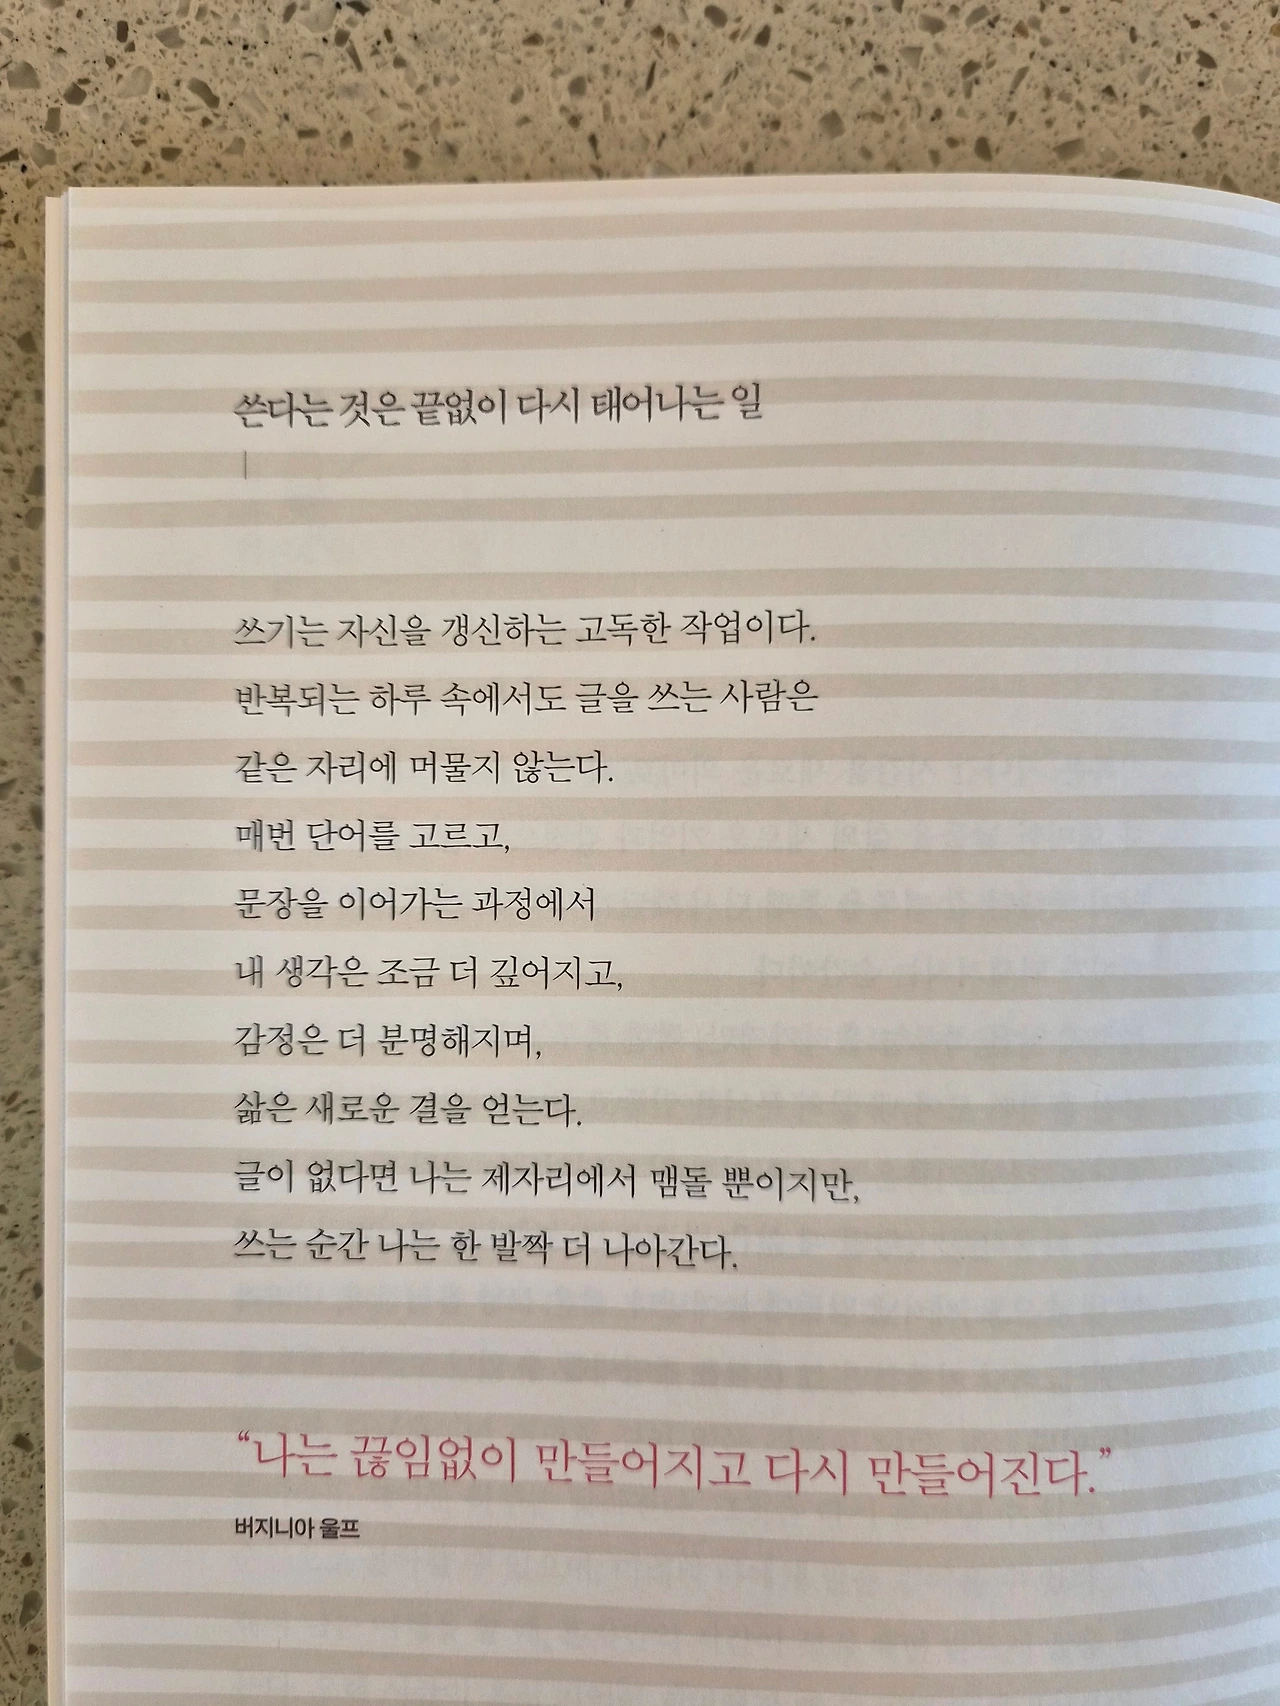 쓴다는 것은 끝없이 다시 태어나는 일
쓰기는 자신을 갱신하는 고독한 작업이다.
반복되는 하루 속에서도 글을 쓰는 사람은
같은 자리에 머물지 않는다.
매번 단어를 고르고,
문장을 이어가는 과정에서
내 생각은 조금 더 깊어지고,
감정은 더 분명해지며,
삶은 새로운 결을 얻는다.
글이 없다면 나는 제자리에서 맴돌 뿐이지만,
쓰는 순간 나는 한 발짝 더 나아간다.
“나는 끊임없이 만들어지고 다시 만들어진다.”
버지니아 울프